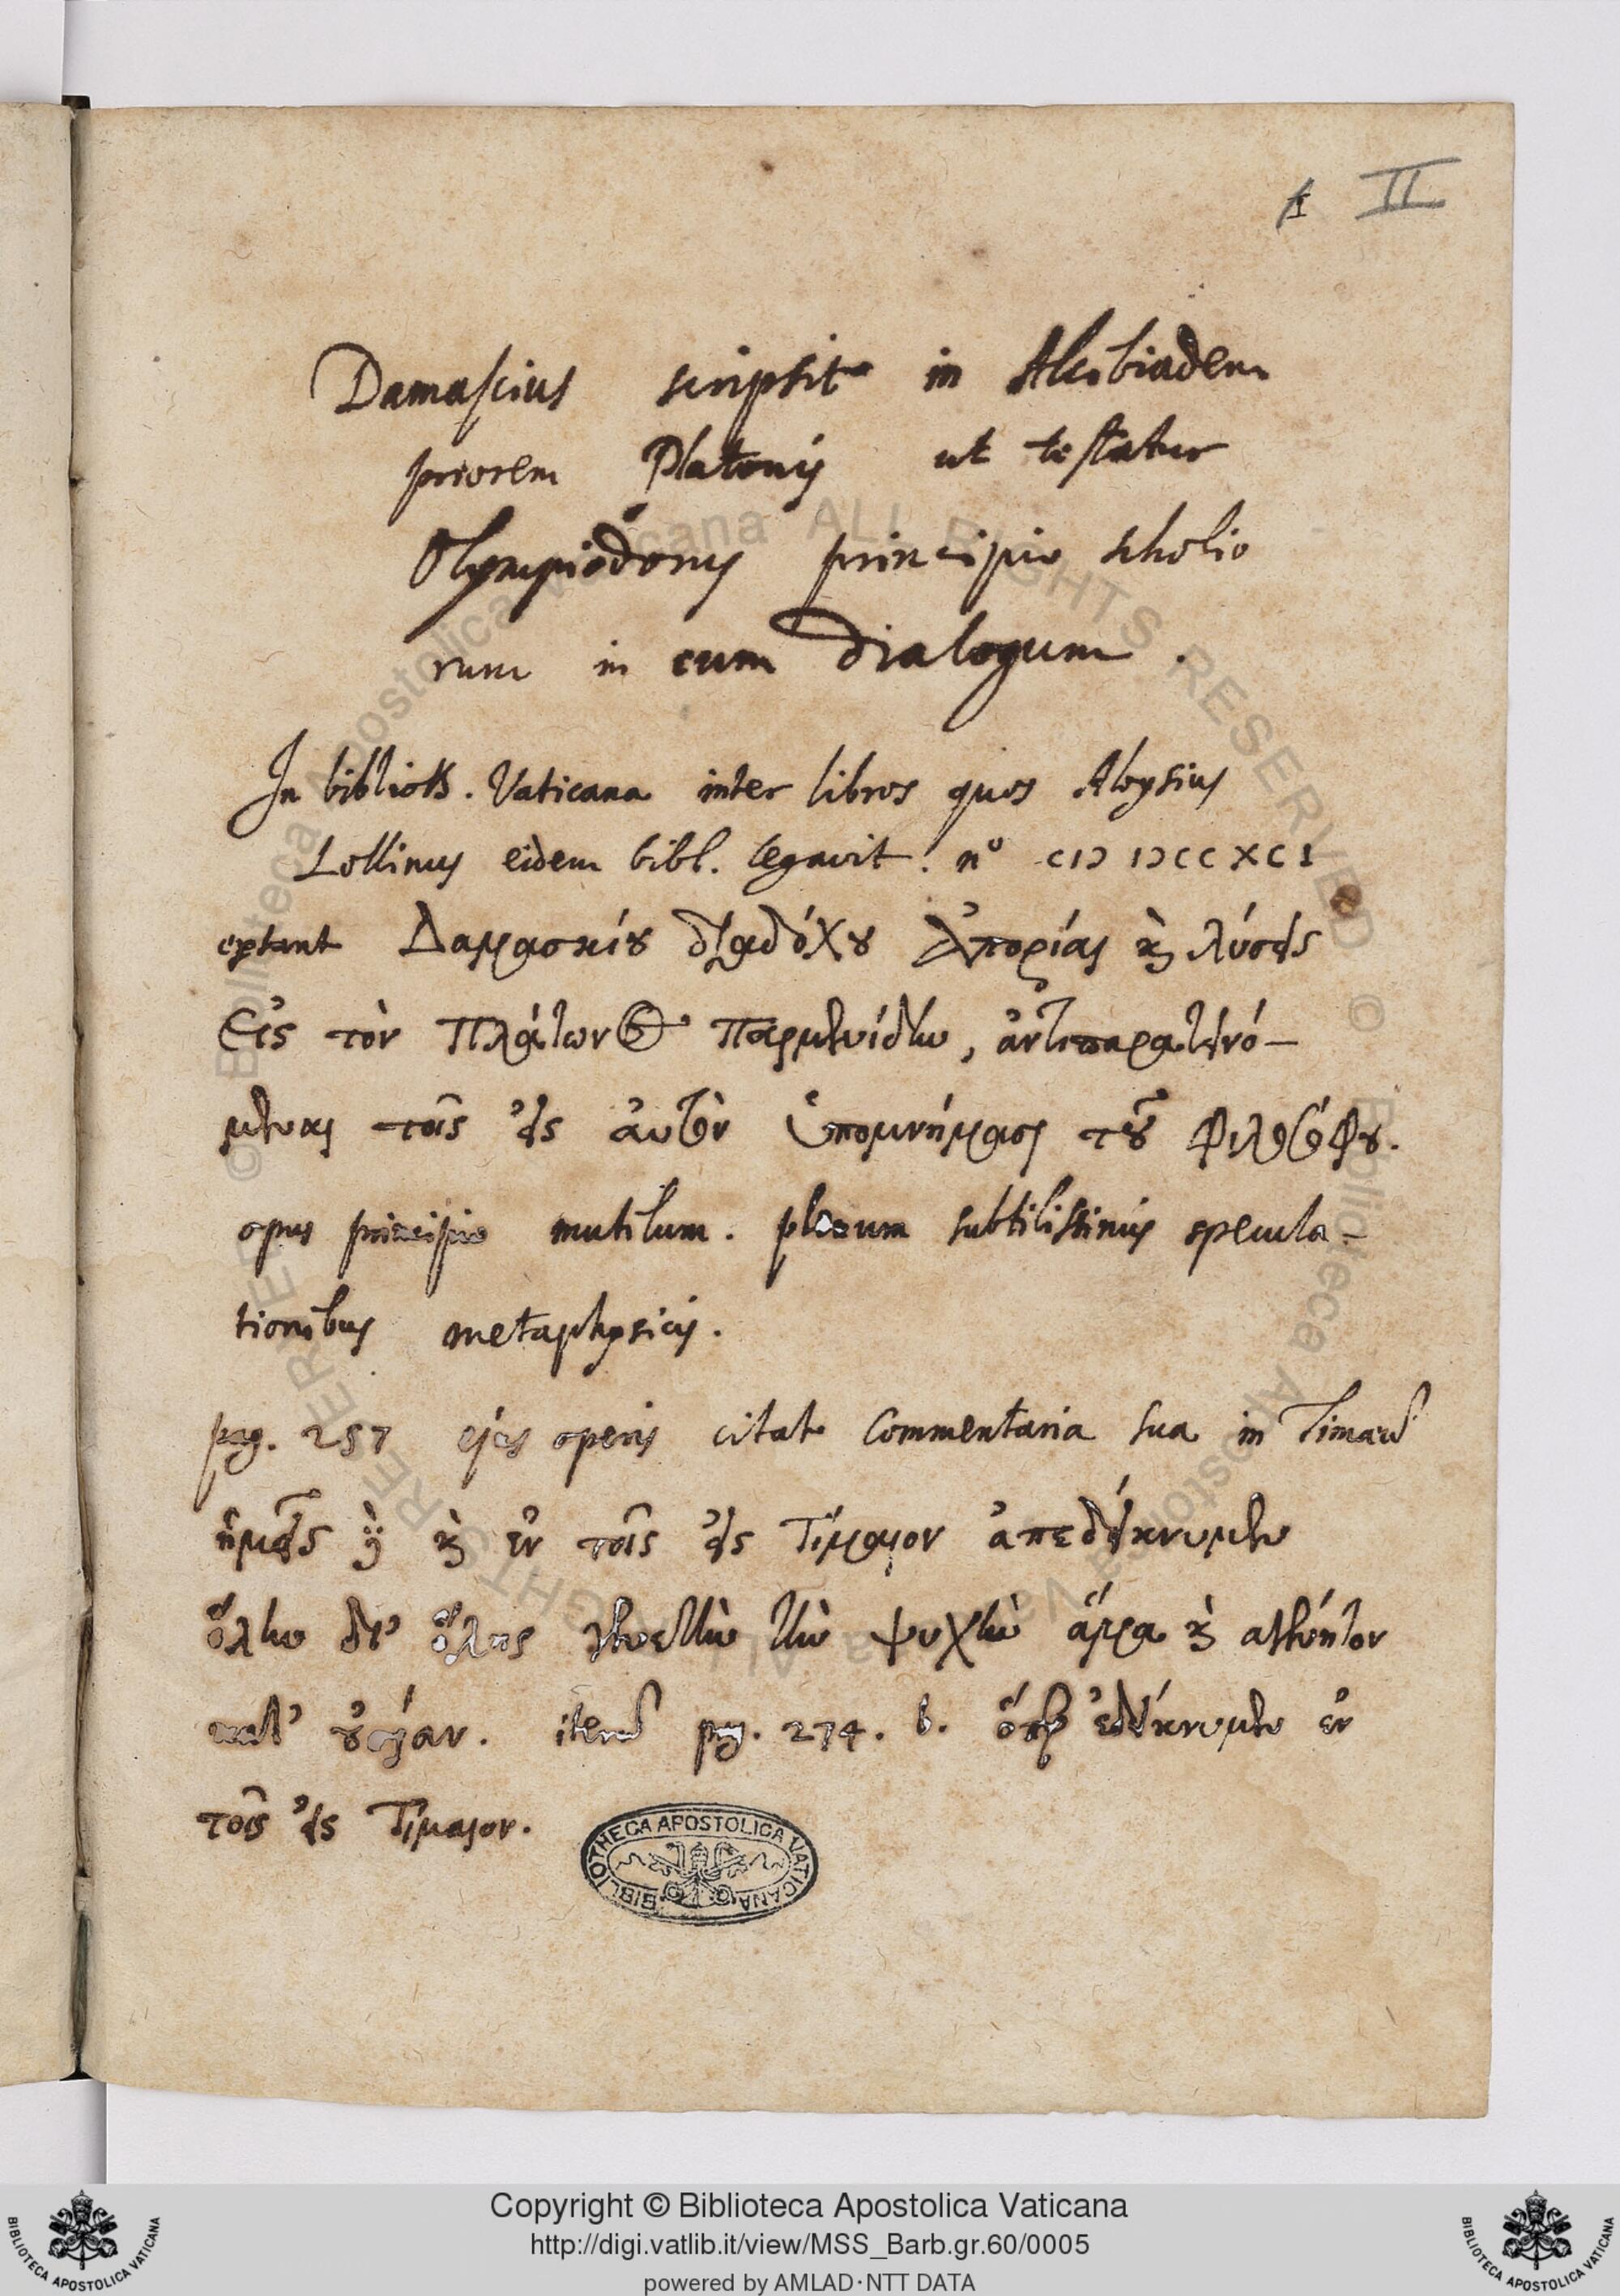 1 II
Damascius scripsit in Alcibiadem
priorem Platonis ut testatur
Olympiodorus principio scholio
rum in eum dialogum.
In biblioth. Vaticana inter libros quos Aloysius
Lollinus eidem bibl. legavit. nº CIↃ IↃCC XCI
extant Δαμασκίου διαδόχου Ἀπορίαι καὶ λύσεις
Εἰς τὸν Πλάτωνος Παρμενίδην, ἀντιπαρατεινό-
μεναι τοῖς εἰς αὐτὸν ὑπομνήμασι τοῦ Φιλοσόφου.
opus principio mutilum. plenum subtilissimis specula-
tionibus metaphysicis.
pag. 257 ejus operis citat Commentaria sua in Timaeum
ἡμεῖς γὰρ καὶ ἐν τοῖς εἰς Τίμαιον ἀπεδείκνυμεν
ὅλην δι' ὅλης γενετὴν τὴν ψυχὴν ἅμα καὶ ἀγένητον
κατ' οὐσίαν. item pag. 274. b. ὅπερ ἐδείκνυμεν ἐν
τοῖς εἰς Τίμαιον.
BIBLIOTHECA APOSTOLICA VATICANA
© Biblioteca Apostolica Vaticana ALL RIGHTS RESERVED
© Biblioteca Apostolica Vaticana ALL RIGHTS RESERVED
Copyright © Biblioteca Apostolica Vaticana
http://digi.vatlib.it/view/MSS_Barb.gr.60/0005
powered by AMLAD·NTT DATA
BIBLIOTECA APOSTOLICA VATICANA
BIBLIOTECA APOSTOLICA VATICANA